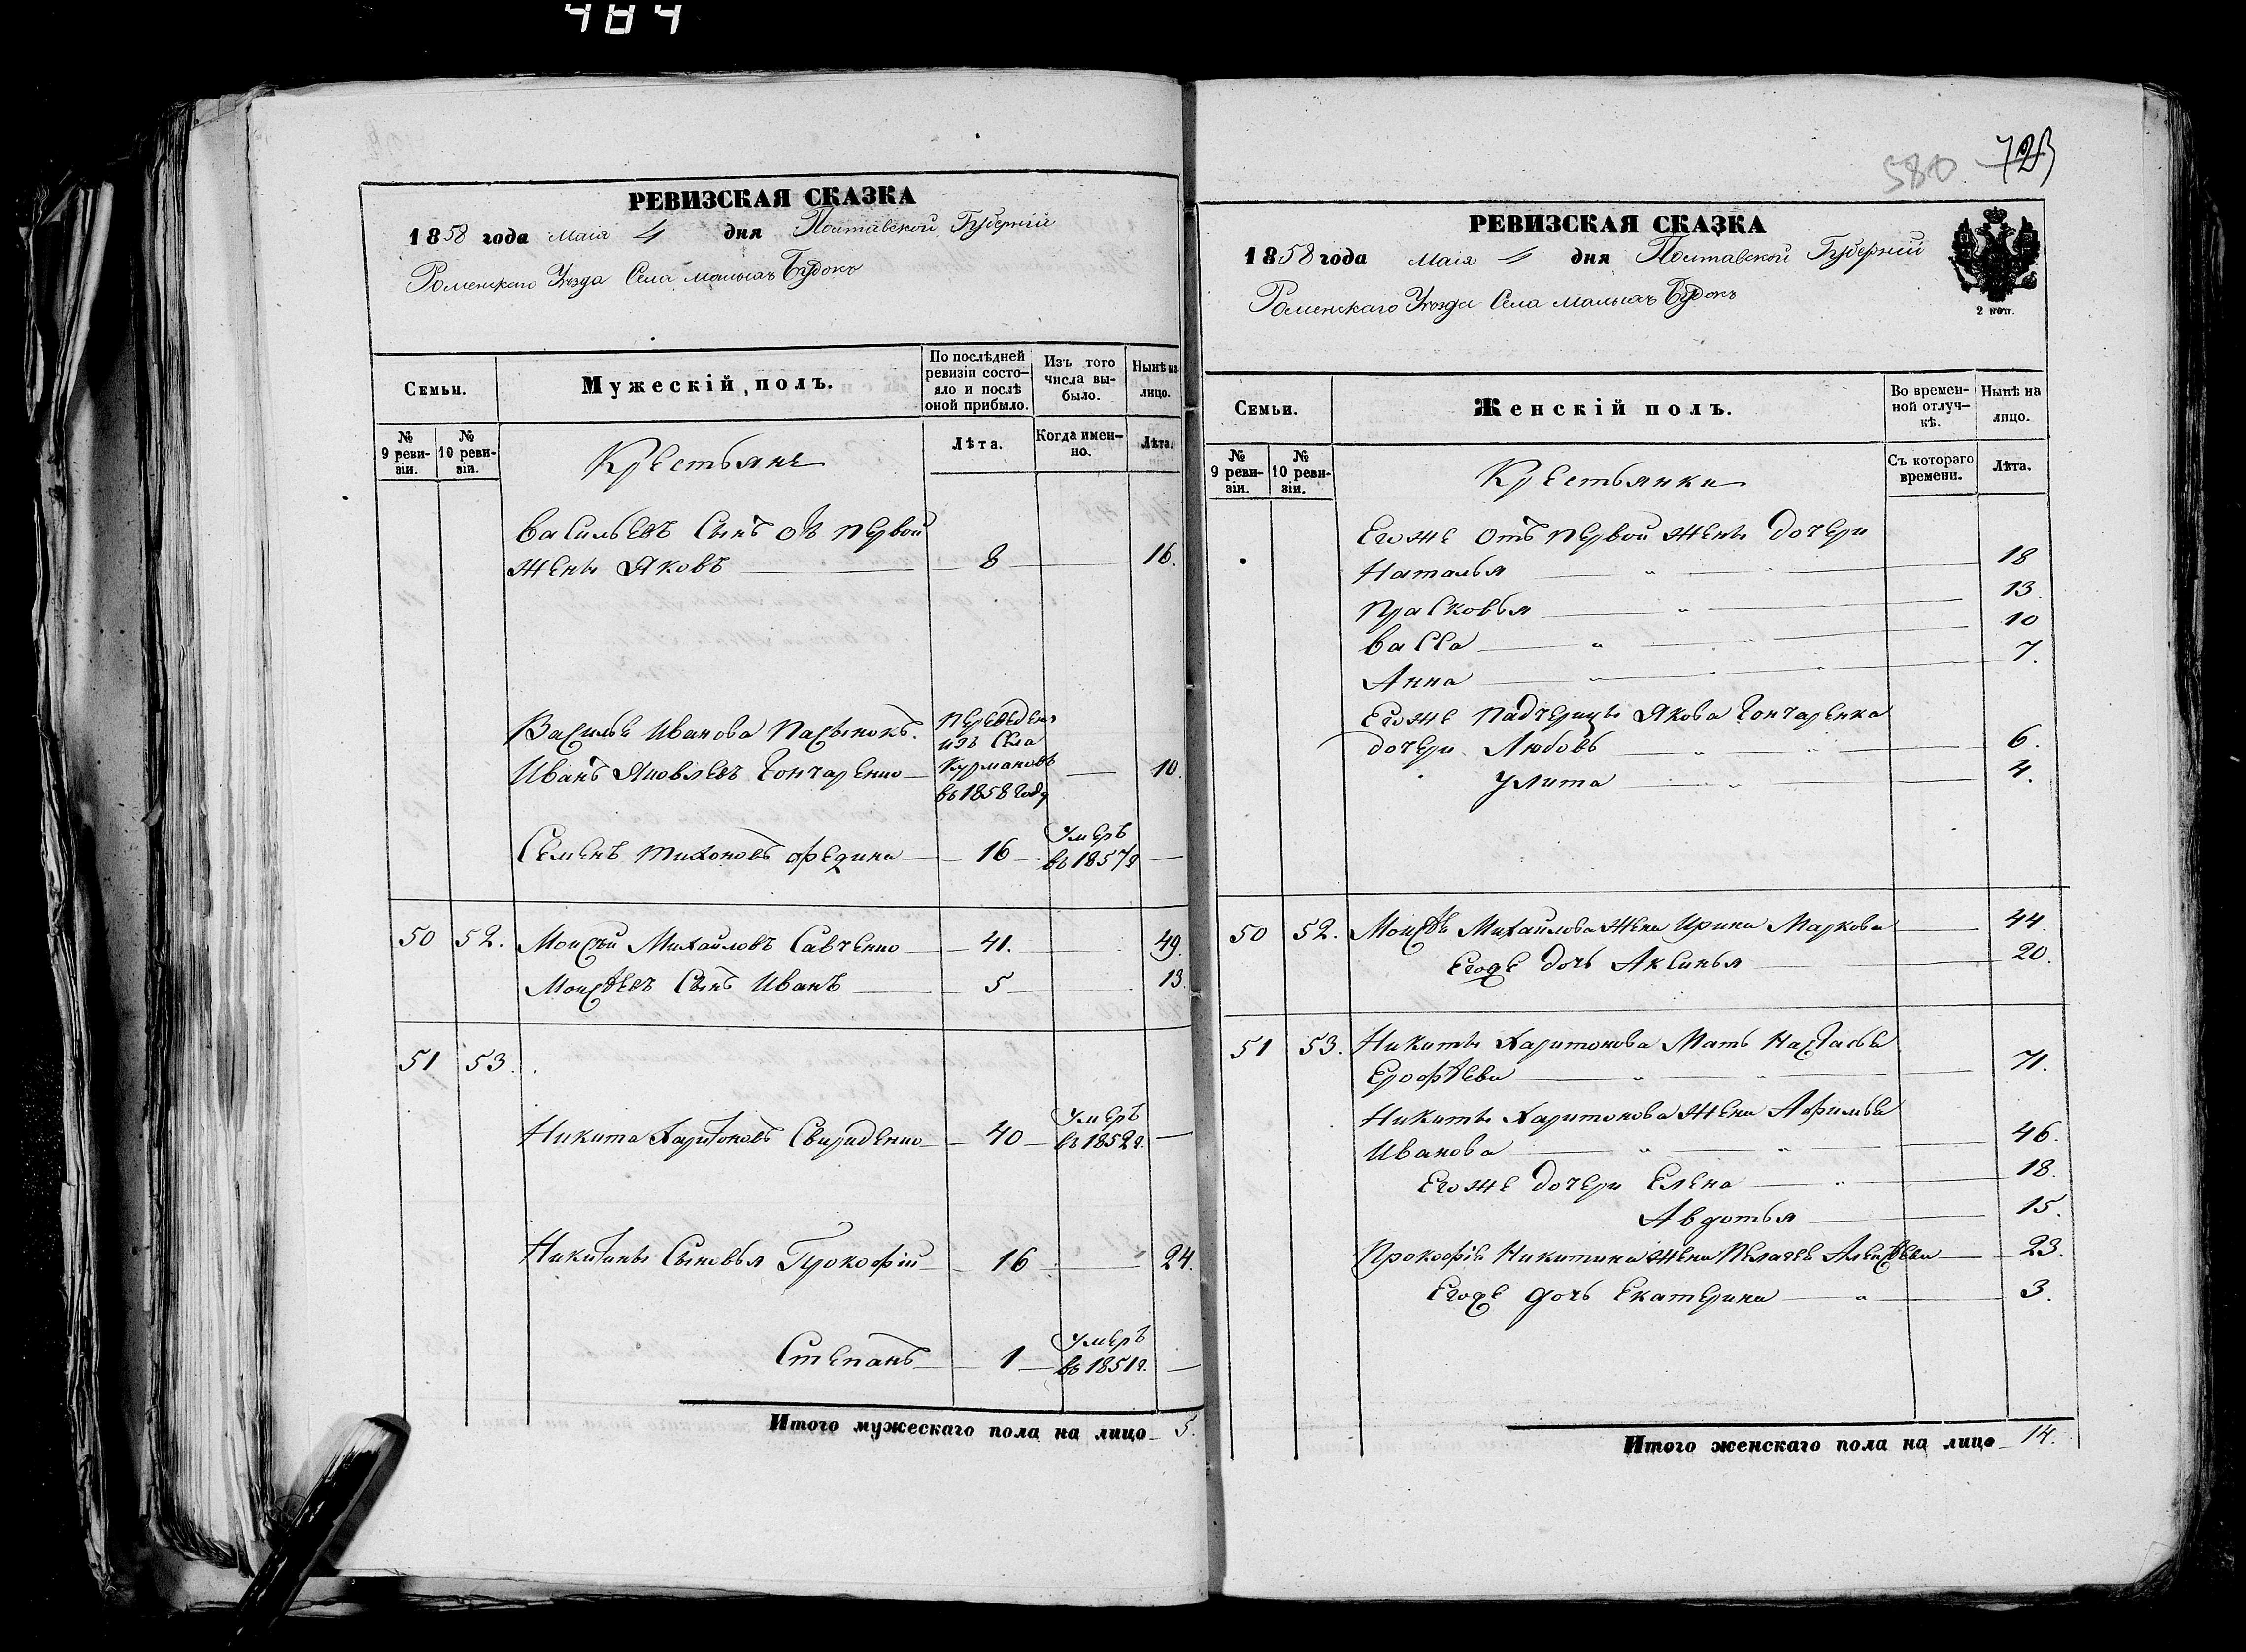 484
РЕВИЗСКАЯ СКАЗКА
1858 года Маія 4 дня Полтавской Губерніи
Роменскаго Уѣзда Села малыхъ Будокъ
Семьи.
Мужескій полъ.
По послѣдней ревизіи состо-яло и послѣ оной прибыло.
Изъ того числа вы-было.
Нынѣ на лицо.
№ 9 реви-зіи.
№ 10 реви-зіи.
Крестьяне
Лѣта.
Когда имен-но.
Лѣта.
Васильевъ Сынъ отъ первой
жены Яковъ 8 16.
Василья Иванова Пасынокъ
Иванъ Яковлевъ Гончаренко
переведенъ
изъ Села
Курмановъ
въ 1858 году
10.
Семенъ Тихоновъ Федина 16 Умеръ въ 1857 г
50 52. Моисѣй Михайловъ Савченко 41. 49.
Моисѣевъ Сынъ Иванъ 5 13.
51 53.
Никита Харитоновъ Свириденко 40 Умеръ въ 1852 г.
Никитины Сыновья Прокофій 16 24.
Степанъ 1 Умеръ въ 1851 г.
Итого мужескаго пола на лицо 5.
580 723
РЕВИЗСКАЯ СКАЗКА
1858 года Маія 4 дня Полтавской Губерніи
Роменскаго Уѣзда Села малыхъ Будокъ
2 коп.
Семьи.
Женскій полъ.
Во времен-ной отлуч-кѣ.
Нынѣ на лицо.
№ 9 реви-зіи.
№ 10 реви-зіи.
Крестьянки
Съ котораго времени.
Лѣта.
Егоже отъ первой жены дочери
Наталья 18
Прасковья 13
Васса 10
Анна 7.
Егоже падчерицы Якова Гончаренка
дочери Любовь 6.
Улита 4.
50 52. Моисѣя Михайлова жена Ирина Маркова 44.
Егоже дочь Аксинья 20.
51 53. Никиты Харитонова Мать Настасья
Ерофѣева 71.
Никиты Харитонова жена Афимья
Иванова 46.
Егоже дочери Елена 18.
Авдотья 15.
Прокофія Никитина жена Пелагея Алексѣева 23.
Егоже дочь Екатерина 3.
Итого женскаго пола на лицо 14.